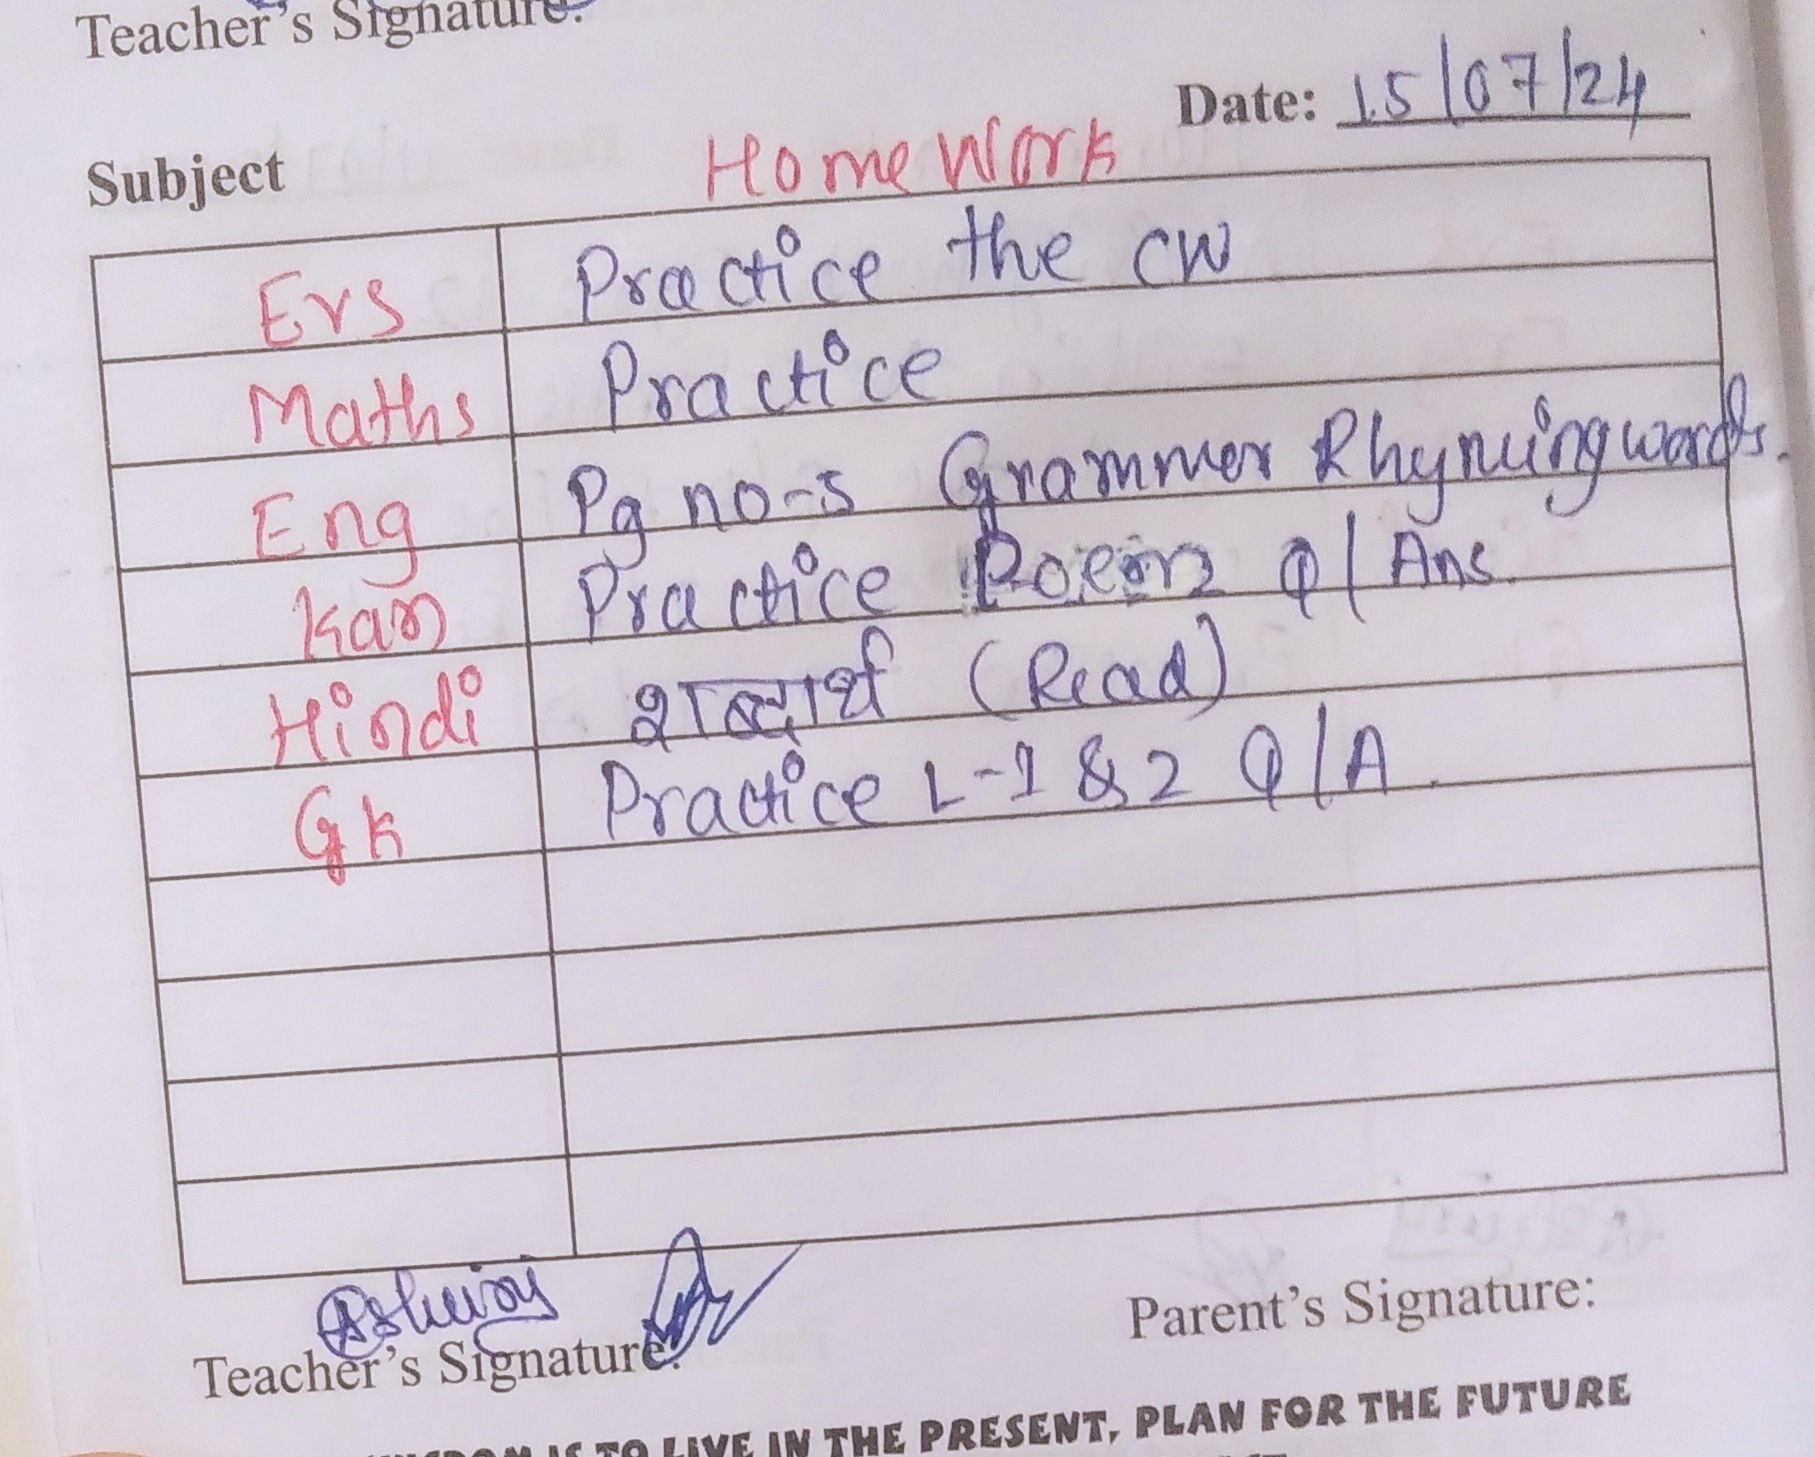 Teacher's Signature:
Date: 15/07/24
Subject Home Work
Evs Practice the CW
Maths Practice
Eng Pg no-5 Grammer Rhyming words.
Kan Practice Poem Q/Ans.
Hindi शब्दार्थ (Read)
Gk Practice L-1 & 2 Q/A.
Teacher's Signature: Parent's Signature:
IS TO LIVE IN THE PRESENT, PLAN FOR THE FUTURE